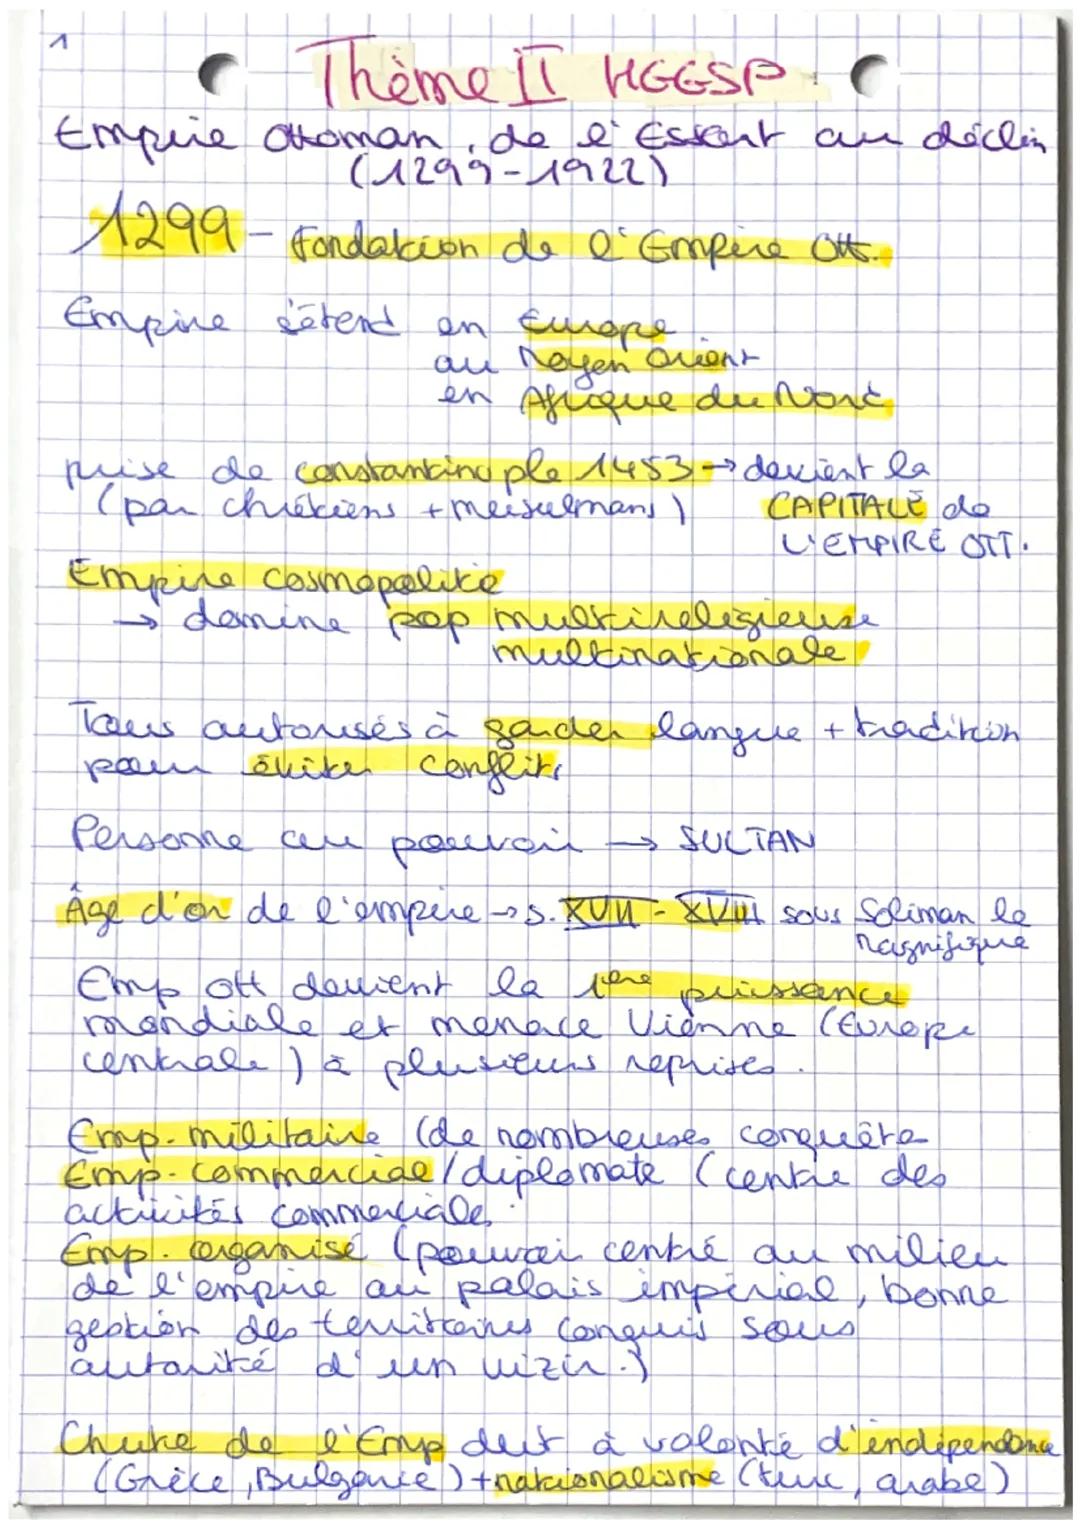 1
Thème II HGGSP
Empire Ottoman, de l'Essort au déclin
(1299-1922)
1299 - Fondation de l'Empire Ott.
Empire s'étend en Europe
au Moyen Orient
en Afrique du Nord
prise de constantinople 1453 → devient la
(par chrétiens + musulmans) CAPITALE de
L'EMPIRE OTT.
Empire cosmopolite
→ domine pop multireligieuse
multinationale
Tous autorisés à garder langue + tradition
pour éviter conflits
Personne au pouvoir → SULTAN
Âge d'or de l'empire → s. XVII - XVIII sous Soliman le
Magnifique
Emp ott devient la 1ère puissance
mondiale et menace Vienne (Europe
centrale) à plusieurs reprises.
Emp. militaire (de nombreuses conquête
Emp. commercial / diplomate (centre des
activités commerciales.
Emp. organisé (pouvoir centré au milieu
de l'empire au palais impérial, bonne
gestion des territoires conquis sous
autorité d'un vizir.)
Chute de l'Emp dut à volonté d'indépendance
(Grèce, Bulgarie) + nationalisme (turc, arabe)